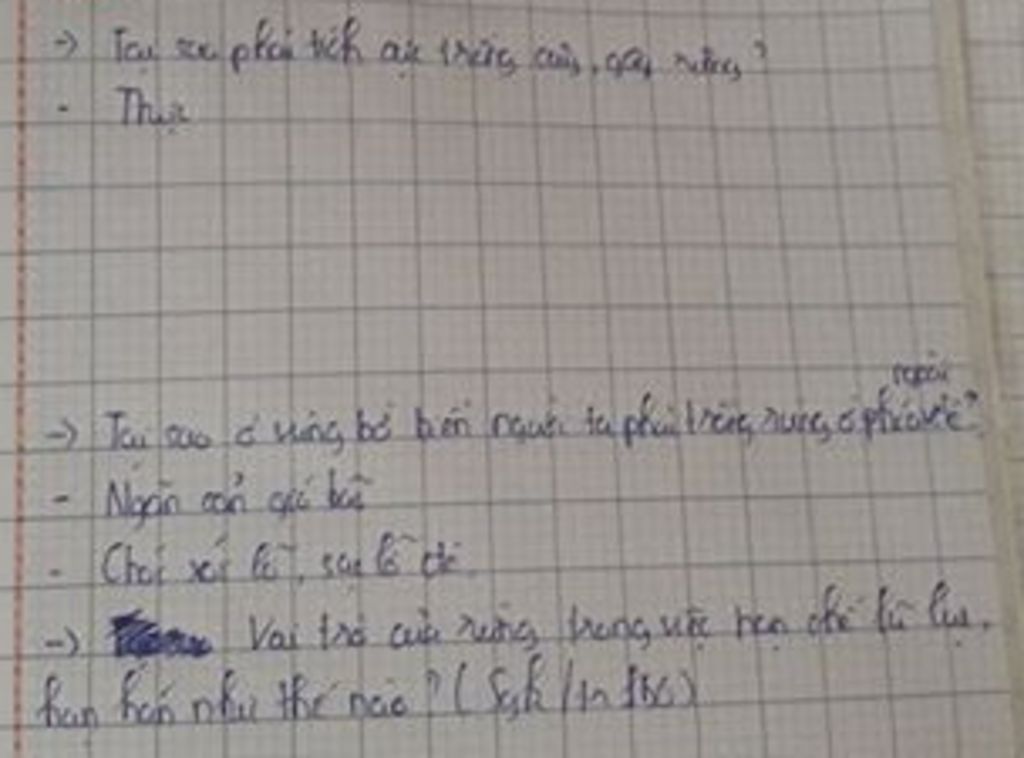 -> Tại sao phải tích cực trồng cây, gây rừng?
- Thực
-> Tại sao ở vùng bờ biển người ta phải trồng rừng ở phía ngoài đê?
- Ngăn cản gió bão
- Chống xói lở, sạt lở đê
-> Vai trò của rừng trong việc hạn chế lũ lụt,
hạn hán như thế nào? (Sgk/